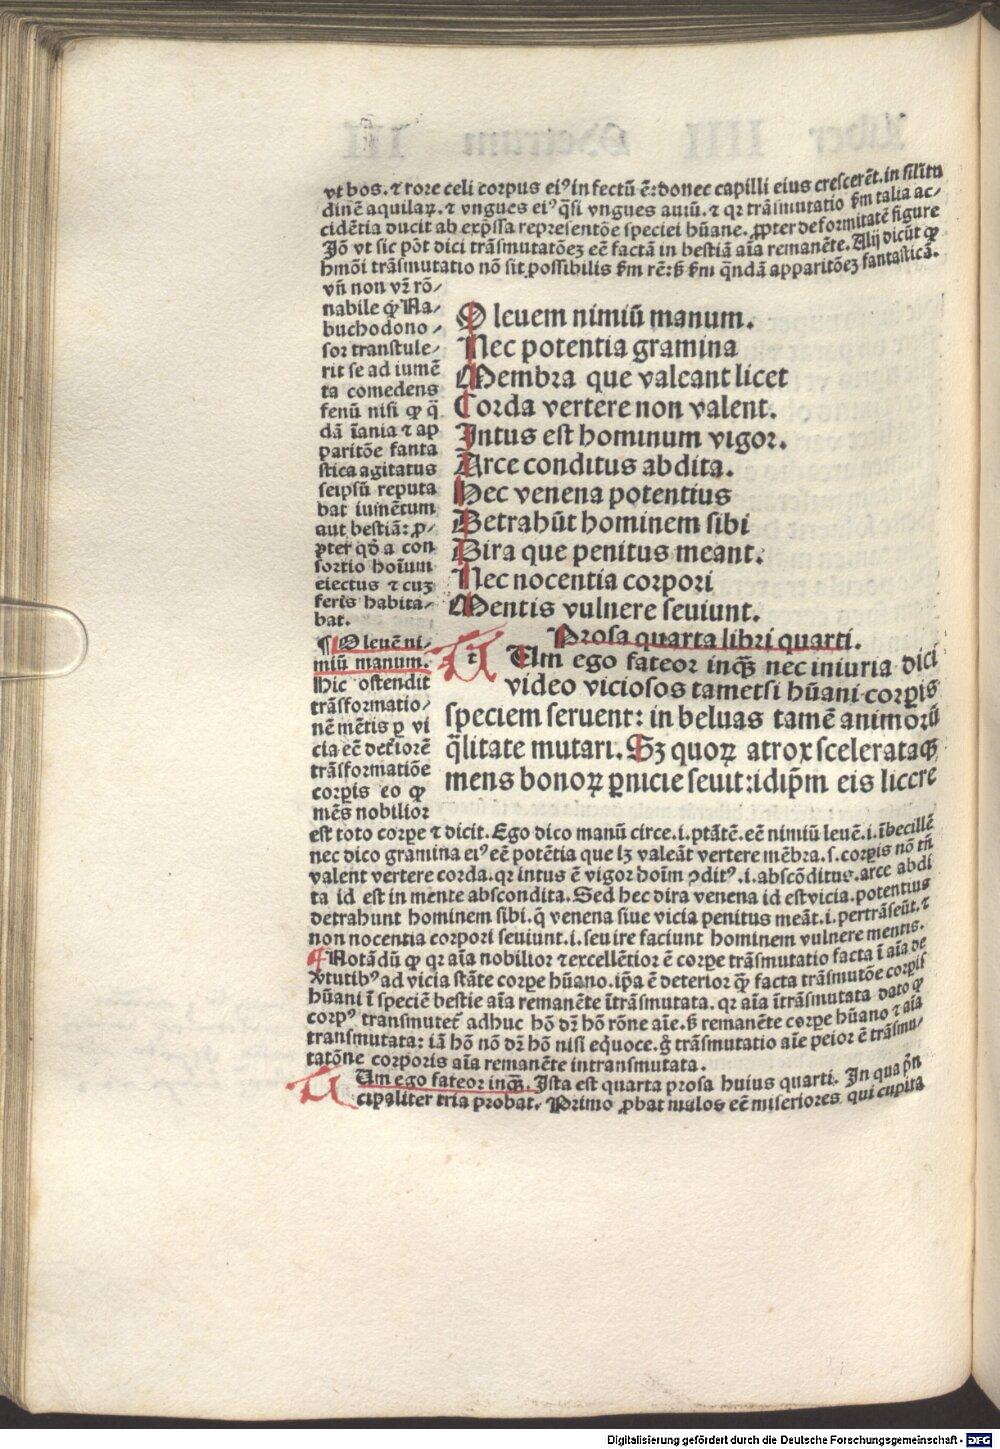 vt bos. ⁊ rore celi corpus eiꝰ infectū ē: donec capilli eius crescerēt. in silitu
dinē aquilaꝝ. ⁊ vngues eiꝰ q̄si vngues auiū. ⁊ qꝛ trāsmutatio ẜm talia ac⸗
cidētia ducit ab exp̄ssa representōe speciei hūane. ꝓpter deformitatē figure
Jō vt sic pōt dici trāsmutatōeꝫ eē factā in bestiā aīa remanēte. Alij dicūt ꝙ
hmōi trāsmutatio nō sit possibilis ẜm rē: ẜ ẜm q̄ndā apparitōeꝫ fantasticā.
vn̄ non vr̄ rō⸗
nabile ꝙ Na⸗
buchodono⸗
sor transtule⸗
rit se ad iumē
ta comedens
fenū nisi ꝙ q̄
dā īania ⁊ ap
paritōe fanta
stica agitatus
seipsū reputa
bat iumētum
aut bestiā: ꝓ⸗
pter qd̄ a con
sortio hoīum
eiectus ⁊ cuꝫ
feris habita⸗
bat.
¶ O leuē ni⸗
miū manum.
Hic ostendit
trāsformatio⸗
nē mētis ꝑ vi
cia eē deteriorē
trāsformatiōe
corꝑis eo ꝙ
mēs nobilior
O leuem nimiū manum.
Nec potentia gramina
Membra que valeant licet
Corda vertere non valent.
Intus est hominum vigor.
Arce conditus abdita.
Hec venena potentius
Detrahūt hominem sibi
Dira que penitus meant.
Nec nocentia corpori
Mentis vulnere seuiunt.
Prosa quarta libri quarti.
t Um ego fateor inqꝫ nec iniuria dici
video viciosos tametsi hūani corꝑis
speciem seruent: in beluas tamē animorū
q̄litate mutari. Sꝫ quoꝝ atrox scelerataqꝫ
mens bonoꝝ ꝑnicie seuit: idip̄m eis licere
est toto corꝑe ⁊ dicit. Ego dico manū circe .i. ptātē. eē nimiū leuē .i. ībecillē
nec dico gramina eiꝰ eē potētia que lꝫ valeāt vertere mēbra .s. corꝑis nō tn̄
valent vertere corda. qꝛ intus ē vigor hoīm ꝯditꝰ .i. abscōditus. arce abdi
ta id est in mente abscondita. Sed hec dira venena id est vicia. potentius
detrahunt hominem sibi. q̄ venena siue vicia penitus meāt .i. pertrāseūt. ⁊
non nocentia corpori seuiunt .i. seuire faciunt hominem vulnere mentis.
¶ Notādū ꝙ qꝛ aīa nobilior ⁊ excellētior ē corꝑe trāsmutatio facta ī aīa de
v̓tutibꝰ ad vicia stāte corꝑe hūano. ip̄a ē deterior q̄ꝫ facta trāsmutōe corꝑis
hūani ī speciē bestie aīa remanēte ītrāsmutata. qꝛ aīa ītrāsmutata dato ꝙ
corpꝰ transmutet̄ adhuc hō dꝛ̄ hō rōne aīe. ẜ remanēte corꝑe hūano ⁊ aīa
transmutata: iā hō nō dꝛ̄ hō nisi equoce. g̊ trāsmutatio aīe peior ē trāsmu⸗
tatōne corporis aīa remanēte intransmutata.
t Um ego fateor inqꝫ. Ista est quarta prosa huius quarti. In qua p̄n
cipaliter tria probat. Primo ꝓbat malos eē miseriores qui cupita
Digitalisierung gefördert durch die Deutsche Forschungsgemeinschaft - DFG